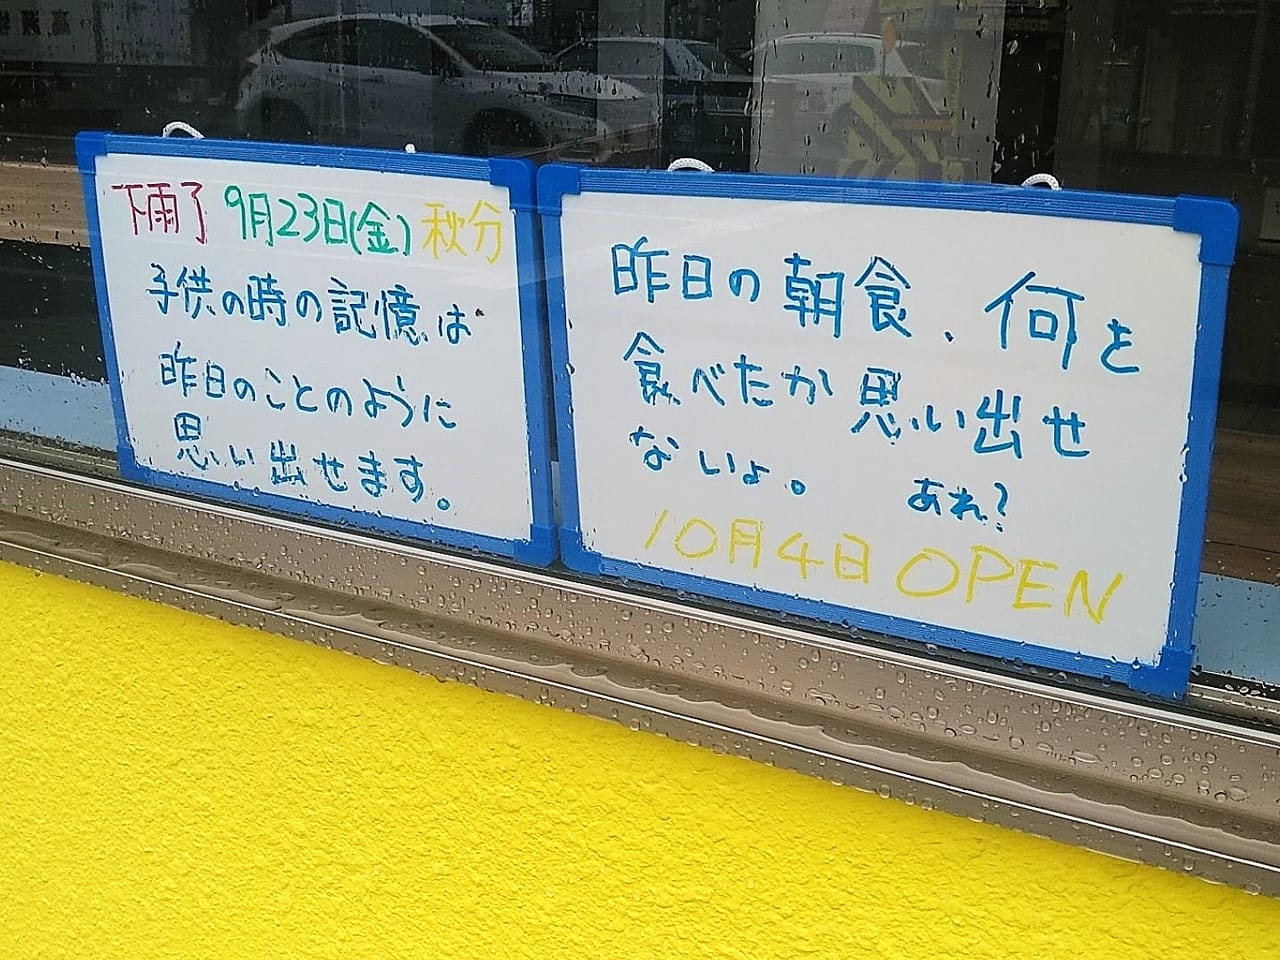 下雨了 9月23日(金) 秋分
子供の時の記憶は
昨日のことのように
思い出せます。
昨日の朝食、何を
食べたか思い出せ
ないょ。 あれ?
10月4日 OPEN